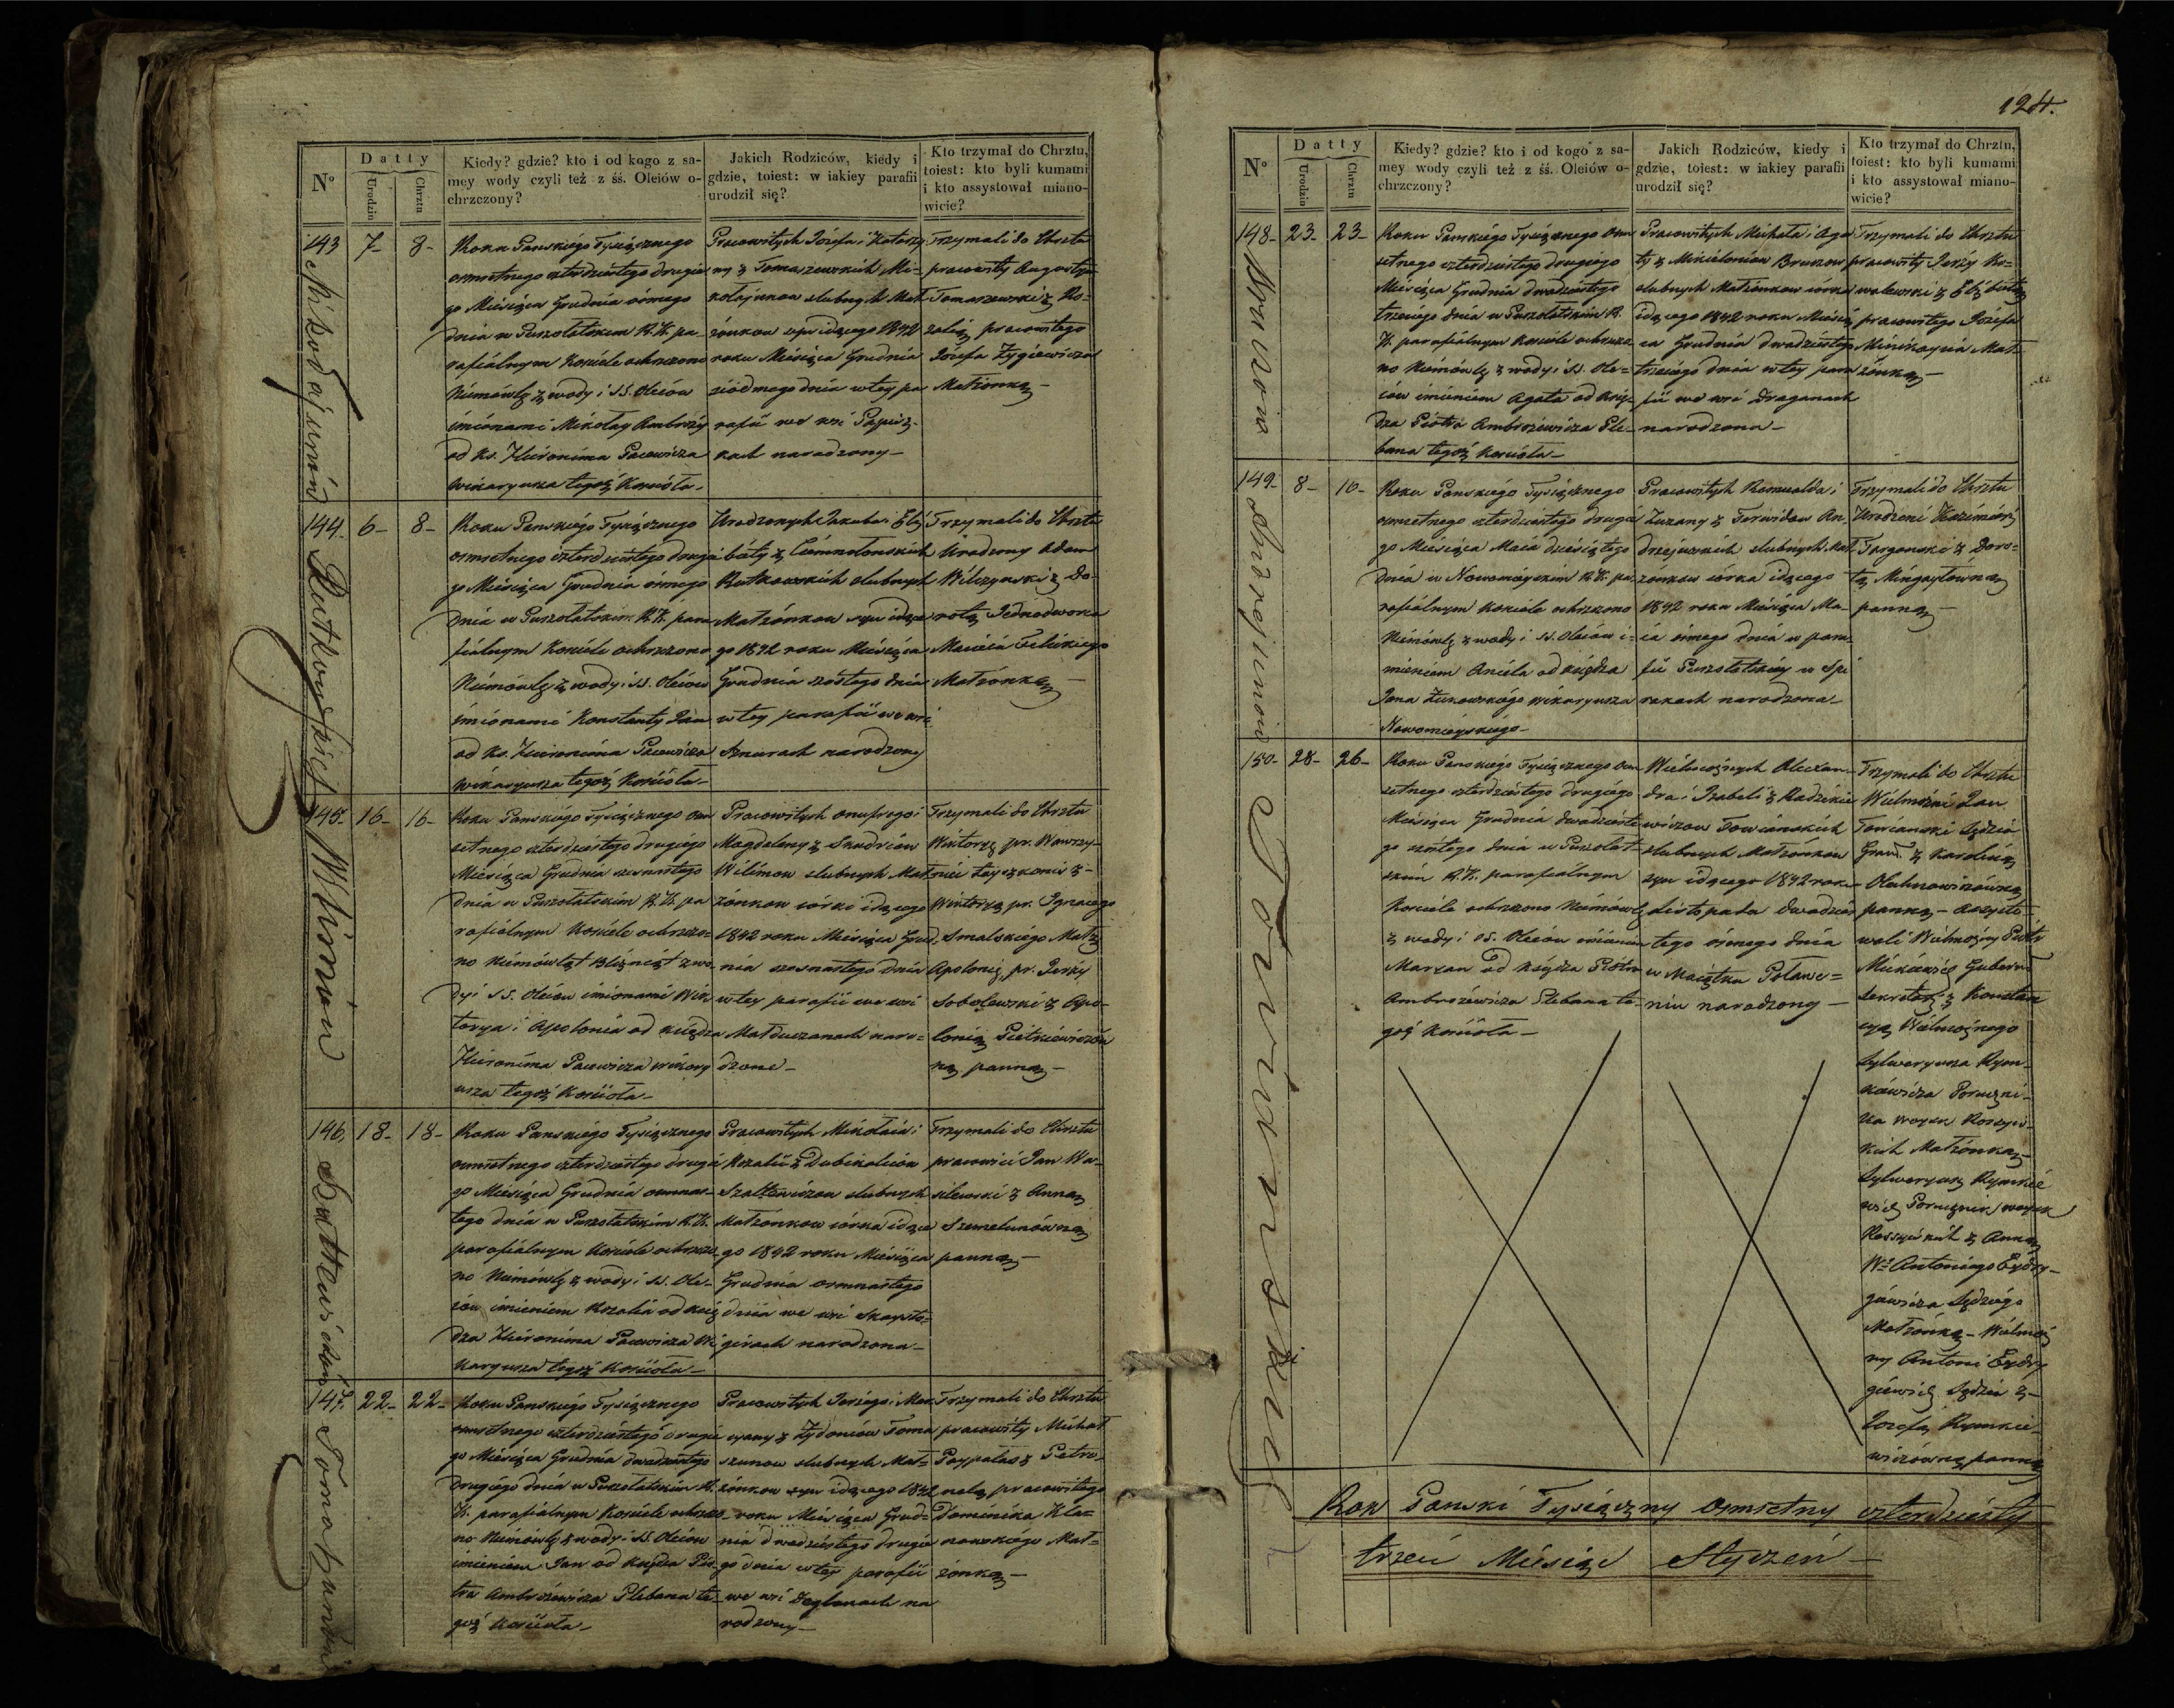 N°
Datty
Urodzin
Chrztu
Kiedy? gdzie? kto i od kogo z sa-
mey wody czyli też z śś. Oleiów o-
chrzczony?
Jakich Rodziców, kiedy i
gdzie, toiest: w iakiey parafii
urodził się?
Kto trzymał do Chrztu,
toiest: kto byli kumami
i kto assystował miano-
wicie?
143
Mikołajunów
7-
8-
Roku Panskiégo Tysiącznego
osmsetnego czterdziestego drugie
go Miésiąca Grudnia ósmego
dnia w Puszołatskim R. K. pa-
rafiálnym Kościéle ochrzczono
Niémowlę z wody i SS. Oleiów
imionami Mikołay Ambroży
od Ks. Hieronima Pacewicza
Wikaryusza tegoż Kościoła-
Pracowitych Józefa i Katarzy
ny z Tomaszewskich Mi-
kołajunow slubnych Mał
żonkow syn idącego 1842
roku Miésiąca Grudnia
siódmego dnia w tey pa
rafii we wsi
kach narodzony-
Trzymali do Chrztu
pracowity Augustyn
Tomaszewski z Ro-
zalią pracowitego
Józefa Żygiewicza
Małżonką-
144-
Rutkowskiej
6-
8-
Roku Panskiégo Tysiącznego
osmsetnego czterdziestego drugie
go Miésiąca Grudnia ósmego
dnia w Puszołatskim R. K. para
fiálnym Kościéle ochrzczono
Niémowlę z wody i SS. Oleiów
imionami Konstanty Jan
od Ks. Hieronima Pacewicza
wikaryusza tegoż Kościoła-
Urodzonych Jakuba i Elż
biéty z
Rutkowskich slubnych
Małżonkow syn idące
go 1842 roku Miésiąca
Grudnia szóstego dnia
w tey parafii we wsi
Sznurach narodzony
Trzymali do Chrztu
Urodzony Adam
Wilczynski z Do-
rotą Jednodworca
Macieia
Małżonką-
145-
Wilimów
16-
16-
Roku Panskiégo Tysiącznego osm
setnego czterdziestego drugiégo
Miésiąca Grudnia szesnastego
dnia w Puszołatskim R. K. pa
rafiálnym Kościéle ochrzczo-
no Niémowląt Bliźniąt z wo-
dy i SS. Oleiów imionami Wik
torya i Apolonia od Księdza
Hieronima Pacewicza wikary
usza tegoż Kościoła-
Pracowitych Onufrego i
Magdaleny z Skudriów
Wilimow slubnych Mał
żonkow córki idącego
1842 roku Miésiąca Grud
nia szesnastego dnia
w tey parafii we wsi
Małduczanach naro-
dzone-
Trzymali do Chrztu
Wiktoryą pr. Wawrzy-
niéc z
Wiktoryą pr. Ignacego
Smalskiégo Małż
Apolonią, pr. Jerzy
Sobolewski z Apo-
lonią Pietkiéwiczów
ną panną-
146.
Szattewiczów
18-
18-
Roku Panskiégo Tysiącznego
osmsetnego czterdziestego drugie
go Miésiąca Grudnia osmnas-
tego dnia w Puszołatskim R. K.
parafiálnym Kościéle ochrzczo-
no Niémowlę z wody i SS. Ole-
iów imieniem Rozalia od Księ
dza Hieronima Pacewicza Wi
karyusza tegoż Kościoła-
Pracowitych Mikołaia i
Rozalii z Dubikalciów
Szaltewiczow slubnych
Małżonkow córka idące
go 1842 roku Miésiąca
Grudnia osmnastego
dnia we wsi Skaysto-
girach narodzona-
Trzymali do Chrztu
pracowici Jan Wa-
silewski z Anną
Szemelunówną
panną-
147.
Tomaszunów
22-
22-
Roku Panskiégo Tysiącznego
osmsetnego czterdziestego drugie
go Miésiąca Grudnia dwudziestego
drugiégo dnia w Puszołatskim R.
K. parafiálnym Kościéle ochrzczo-
no Niémowlę z wody i SS. Oleiów
imieniem Jan od Księdza Pio-
tra Ambrożéwicza Plebana te-
goż Kościoła-
Pracowitych Jerzego i Mar
yany z Żydoniów Toma
szunow slubnych Mał-
żonkow syn idącego 1842
roku Miésiąca Grud-
nia dwudziestego drugie
go dnia w tey parafii
we wsi Deglanach na
rodzony-
Trzymali do Chrztu
pracowity Michał
Puypałas z Petro-
nelą pracowitego
Dominika Kla-
nowskiégo Mał-
żonką-
124.
N°
Datty
Urodzin
Chrztu
Kiedy? gdzie? kto i od kogo z sa-
mey wody czyli też z śś. Oleiów o-
chrzczony?
Jakich Rodziców, kiedy i
gdzie, toiest: w iakiey parafii
urodził się?
Kto trzymał do Chrztu,
toiest: kto byli kumami
i kto assystował miano-
wicie?
148-
Bruzow
23-
23-
Roku Panskiégo Tysiącznego osm
setnego czterdziestego drugiego
Miésiąca Grudnia dwudziestego
trzeciego dnia w Puszołatskim R.
K. parafiálnym Kościéle ochrzczo
no Niémowlę z wody i SS. Ole-
iów imieniem Agata od Księ-
dza Piotra Ambrożéwicza Ple-
bana tegoż Kościoła-
Pracowitych Michała i Aga
ty z Bruzow
slubnych Małżonkow córka
idącego 1842 roku Miésią
ca Grudnia dwudziestego
trzeciego dnia w tey para
fii we wsi Draganach
narodzona-
Trzymali do Chrztu
pracowity Jerzy Ko-
walewski z Elżbiétą
pracowitego Józefa
Mał-
żonką-
149-
Andrejunow
8-
10-
Roku Panskiégo Tysiącznego
osmsetnego czterdziestego drugie
go Miésiąca Maia dziesiątego
dnia w Nowomieyskim R. K. pa-
rafiálnym Kościéle ochrzczono
Niémowlę z wody i SS. Oleiów i-
mieniem Aniéla od księdza
Jana Żukowskiégo wikaryusza
Nowomieyskiégo-
Pracowitych Romualda i
Zuzany z An-
drejuńskich slubnych Mał
żonkow córka idącego
1842 roku Miésiąca Ma-
ia ósmego dnia w para-
fii Puszołatskiey w Spi
rakach narodzona-
Trzymali do Chrztu
Urodzeni Kazimierz
Targonski z Doro-
tą Mingayłowną
panną-
150-
Towianskiej
28-
26-
Roku Panskiégo Tysiącznego osm
setnego czterdziestego drugiégo
Miésiąca Grudnia dwudzieste
go szóstego dnia w Puszołat-
skim R. K. parafiálnym
Kościéle ochrzczono Niémowlę
z wody i SS. Oleiów imieniem
Maryan od Księdza Piotra
Ambrożéwicza Plebana te-
goż Kościoła-
Wielmożnych Alexan-
dra i Izabeli z Radzikie
wiczow Towianskich
slubnych Małżonkow
syn idącego 1842 roku
Listopada dwudzies
tego ósmego dnia
w Maiątku Poławe-
niu narodzony-
Trzymali do Chrztu
Wielmożni Jan
Towianski Sędzia
Gran. z Karoliną
Olechnowiczówną
panną- Assysto-
wali Wielmożny Piotr
Mickiewicz Gubern
Sekretarz z Konstan
cyą Wielmożnego
Sylweryusza Rym-
kiéwicza Poruczni-
ka woysk Rossyis-
kich Małżonką-
Sylweryusz Rymkié
wicz Porucznik woysk
Rossyiskich z Anną
Wo Antoniego Eydry-
giéwicza Sędziégo
Małżonką- Wielmoż
ny Antoni Eydry
giéwicz Sędzia z-
Jozefą Rymkie-
wiczówną panną
Rok Panski Tysiączny osmsetny czterdziesty
trzeci Miésiąc Styczeń-